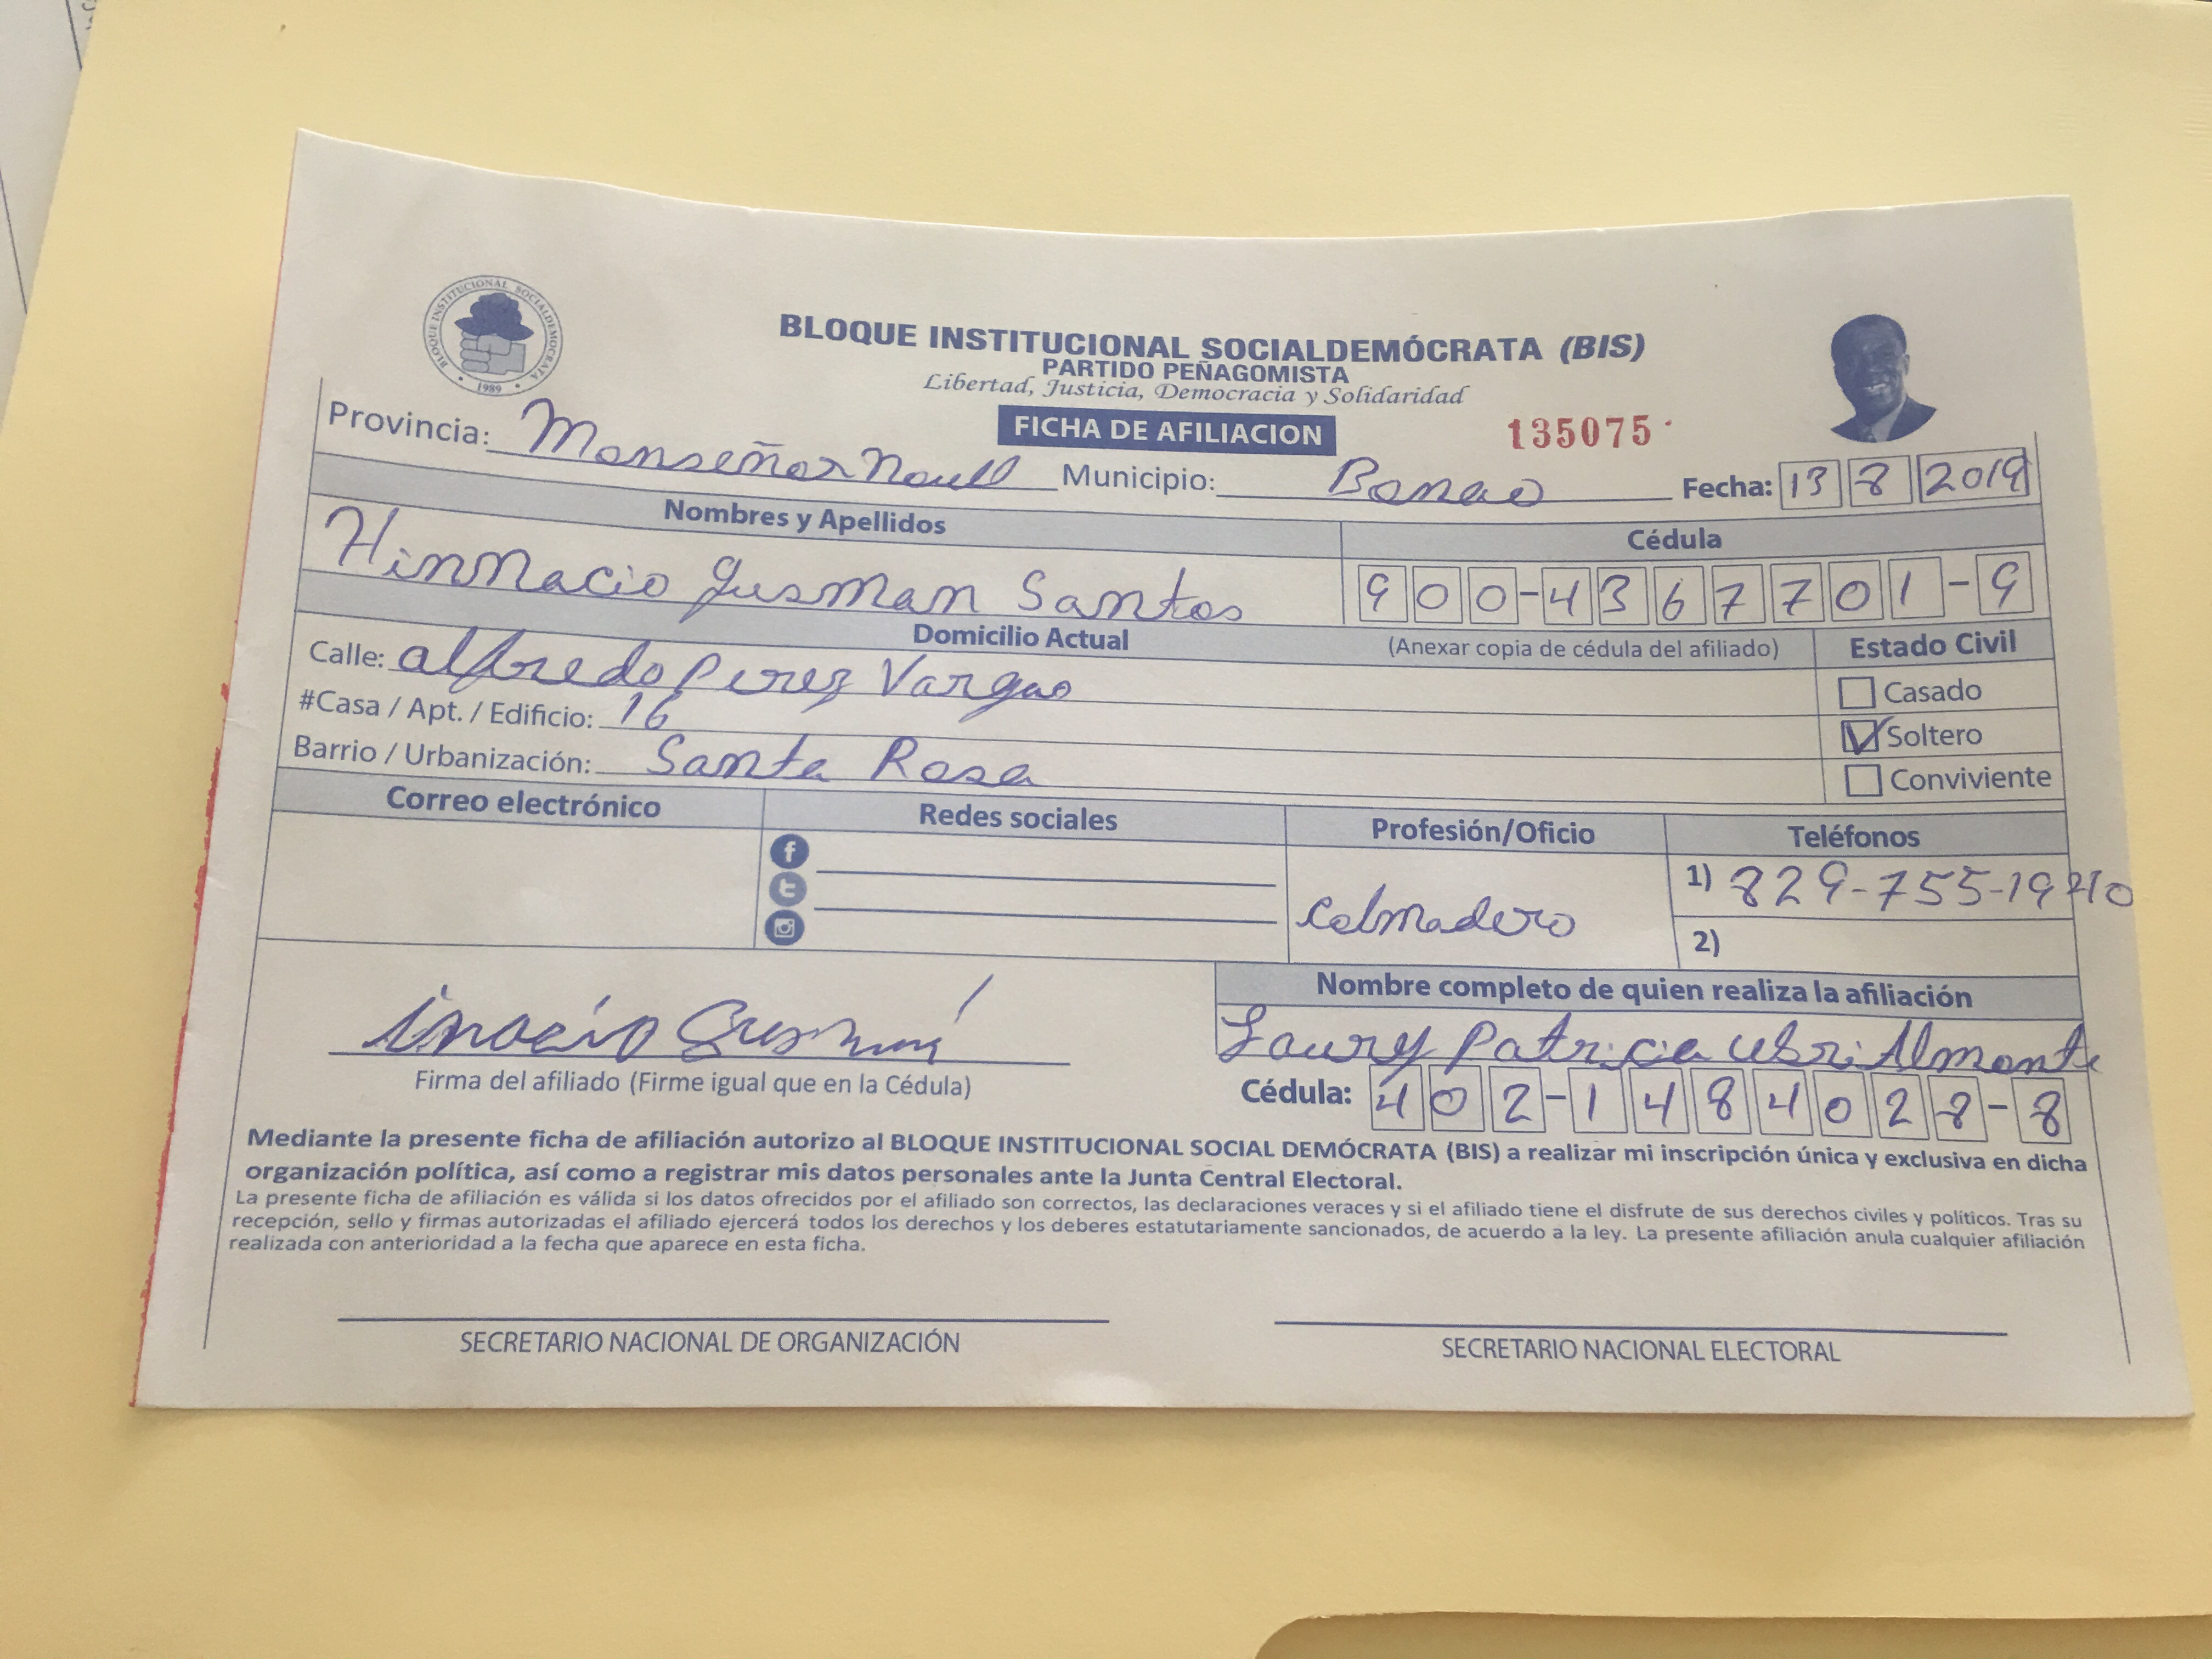 BLOQUE INSTITUCIONAL SOCIALDEMOCRATA
1989
BLOQUE INSTITUCIONAL SOCIALDEMÓCRATA (BIS)
PARTIDO PEÑAGOMISTA
Libertad, Justicia, Democracia y Solidaridad
FICHA DE AFILIACION 135075
Provincia: Monseñor Nouel Municipio: Bonao Fecha: 13 8 2019
Nombres y Apellidos Cédula
Hinnacio Gusman Santos 900-4367701-9
Domicilio Actual (Anexar copia de cédula del afiliado) Estado Civil
Calle: alfredo Perez Vargas Casado
#Casa / Apt. / Edificio: 16 Soltero
Barrio / Urbanización: Santa Rosa Conviviente
Correo electrónico Redes sociales Profesión/Oficio Teléfonos
f
t
1) 829-755-1940
Colmadero
2)
Nombre completo de quien realiza la afiliación
inacio Gusman
Laury Patricia Ubri Almonte
Firma del afiliado (Firme igual que en la Cédula)
Cédula: 402-1484028-8
Mediante la presente ficha de afiliación autorizo al BLOQUE INSTITUCIONAL SOCIAL DEMÓCRATA (BIS) a realizar mi inscripción única y exclusiva en dicha
organización política, así como a registrar mis datos personales ante la Junta Central Electoral.
La presente ficha de afiliación es válida si los datos ofrecidos por el afiliado son correctos, las declaraciones veraces y si el afiliado tiene el disfrute de sus derechos civiles y políticos. Tras su
recepción, sello y firmas autorizadas el afiliado ejercerá todos los derechos y los deberes estatutariamente sancionados, de acuerdo a la ley. La presente afiliación anula cualquier afiliación
realizada con anterioridad a la fecha que aparece en esta ficha.
SECRETARIO NACIONAL DE ORGANIZACIÓN SECRETARIO NACIONAL ELECTORAL